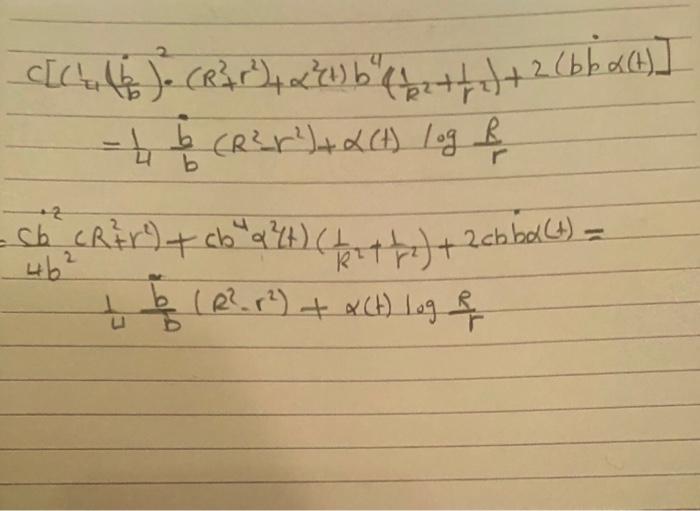 C[(1/4 (ḃ/b)²· (R²+r²)+α²(t) b⁴ (1/R²+1/r²)+2(bḃ α(t)]
=1/4 ḃ/b (R²-r²)+α(t) log R/r
= cḃ²/4b² (R²+r²)+cb⁴α²(t)(1/R²+1/r²)+2cbḃα(t)=
1/4 b̈/b (R²-r²) + α(t) log R/r